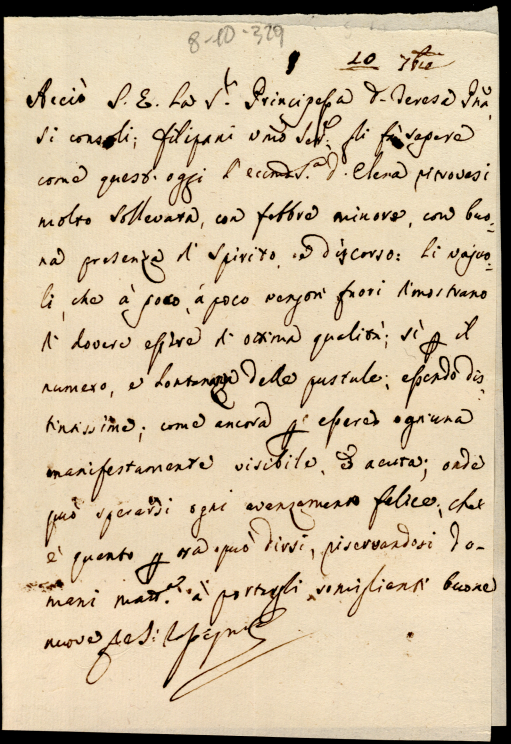 8-10-329
10 7bre
Acciò S. E. La Sra Principessa D. Teresa
si consoli; filipani umo Serre gli fà sapere
come quest'oggi l'eccma Sra D. Elena ritrovasi
molto sollevata, con febbre minore, con buo=
na presenza di Spirito, e discorso: Li vajuo=
li, che à poco, à poco vengon fuori dimostrano
di dovere essere di ottima qualità; sì per il
numero, e lontananza delle pustule; essendo dis=
tintissime; come ancora per essere ogniuna
manifestamente visibile, & acuta; onde
può sperarsi ogni avanzamento felice; che
è quanto per ora può dirsi, riservandosi do=
mani matta à portargli somiglianti buone
nuove